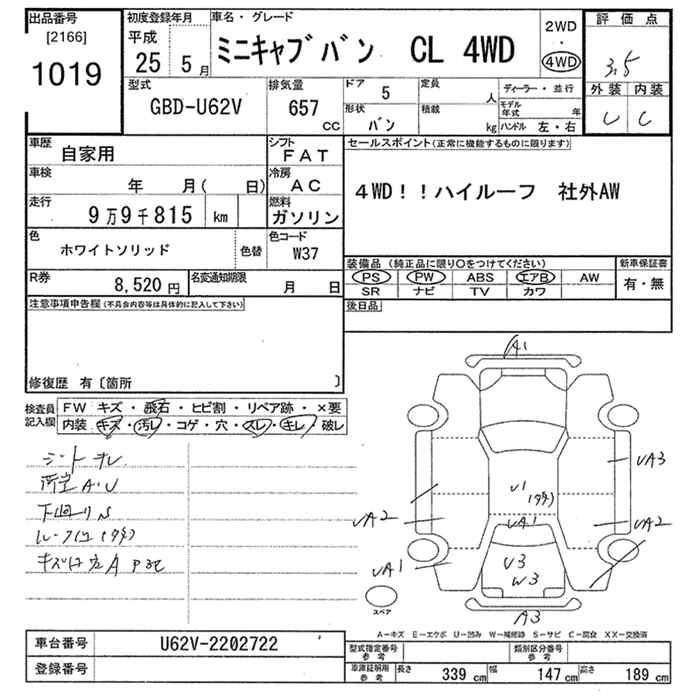 出品番号
[2166]
1019
初度登録年月
平成
25 5月
車名・グレード
ミニキャブバン CL 4WD
2WD
・
4WD
評価点
3.5
外装 内装
C
型式
GBD-U62V
排気量
657 CC
ドア 5
形状 バン
定員 人
積載 kg
ディーラー・並行
モデル年式 年
ハンドル 左・右
車歴 自家用
シフト FAT
車検 年 月( 日)
冷房 AC
走行 9万9千815 km
燃料 ガソリン
色 ホワイトソリッド 色替
色コード W37
R券 8,520円
名変通知期限 月 日
セールスポイント(正常に機能するものに限ります)
4WD!!ハイルーフ 社外AW
装備品 (純正品に限り○をつけてください) 新車保証書
PS PW ABS エアB AW 有・無
SR ナビ TV カワ
後日品
注意事項申告欄(不具合内容等は具体的に記入して下さい)
修復歴 有〔箇所 〕
検査員記入欄
FW キズ・飛石・ヒビ割・リペア跡・×要
内装 キズ・汚レ・コゲ・穴・スレ・キレ・破レ
A1
UA3
U1
UA1
UA2
UA2
UA1
U3
W3
A3
スペア
A-キズ E-エクボ U-凹み W-補修跡 S-サビ C-腐食 XX-交換済
車台番号 U62V-2202722
登録番号
型式指定番号 参考
類別区分番号 参考
車庫証明用 参考 長さ 339 cm 幅 147 cm 高さ 189 cm